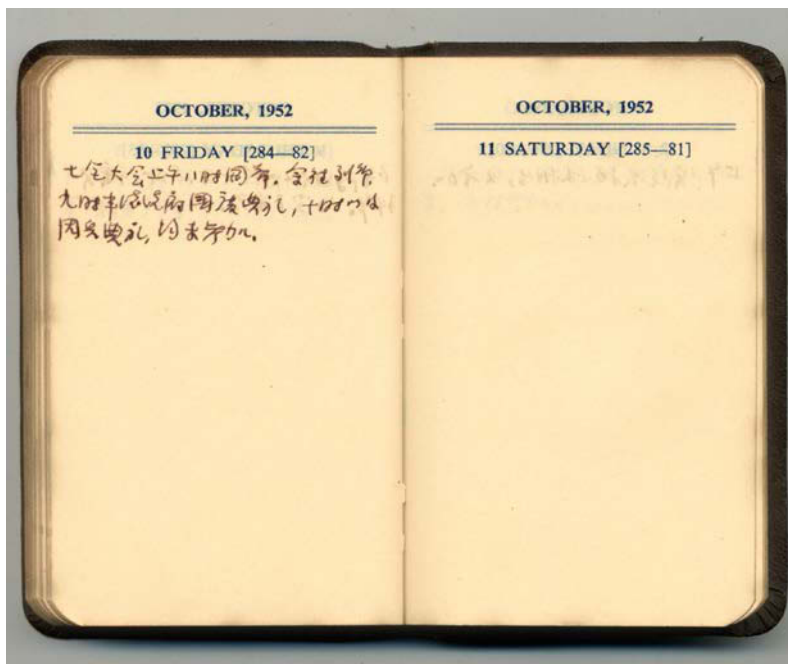 OCTOBER, 1952
10 FRIDAY [284—82]
七全大会上午八时開幕。会柱列席
九时半總統府國慶典礼，十时
閱兵典礼，均未参加。
OCTOBER, 1952
11 SATURDAY [285—81]